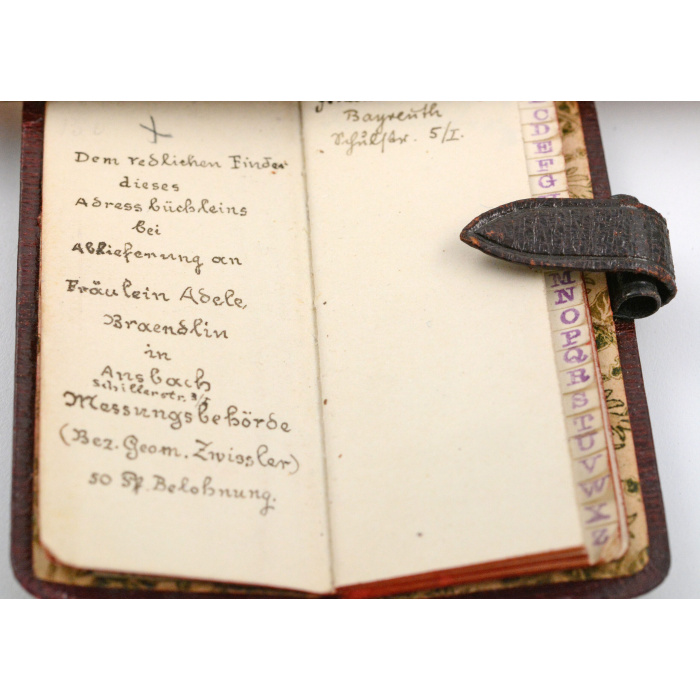 Dem redlichen Finder
dieses
Adressbüchleins
bei
Ablieferung an
Fräulein Adele
Braendlin
in
Ansbach
Schillerstr. 3/I
Messungsbehörde
(Bez. Geom. Zwissler)
50 Pf. Belohnung.
Bayreuth
Schulstr. 5/I.
C
D
E
F
G
M
N
O
P
Q
R
S
T
U
V
W
X
Z